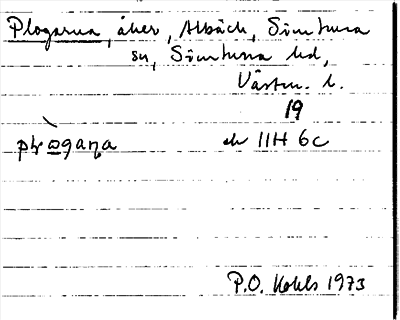 Plogarna, åker, Albäck, Simtuna
sn, Simtuna hd,
Västm. l.
19
plo̲gaṇa ek 11H 6c
P.O. Kohls 1973